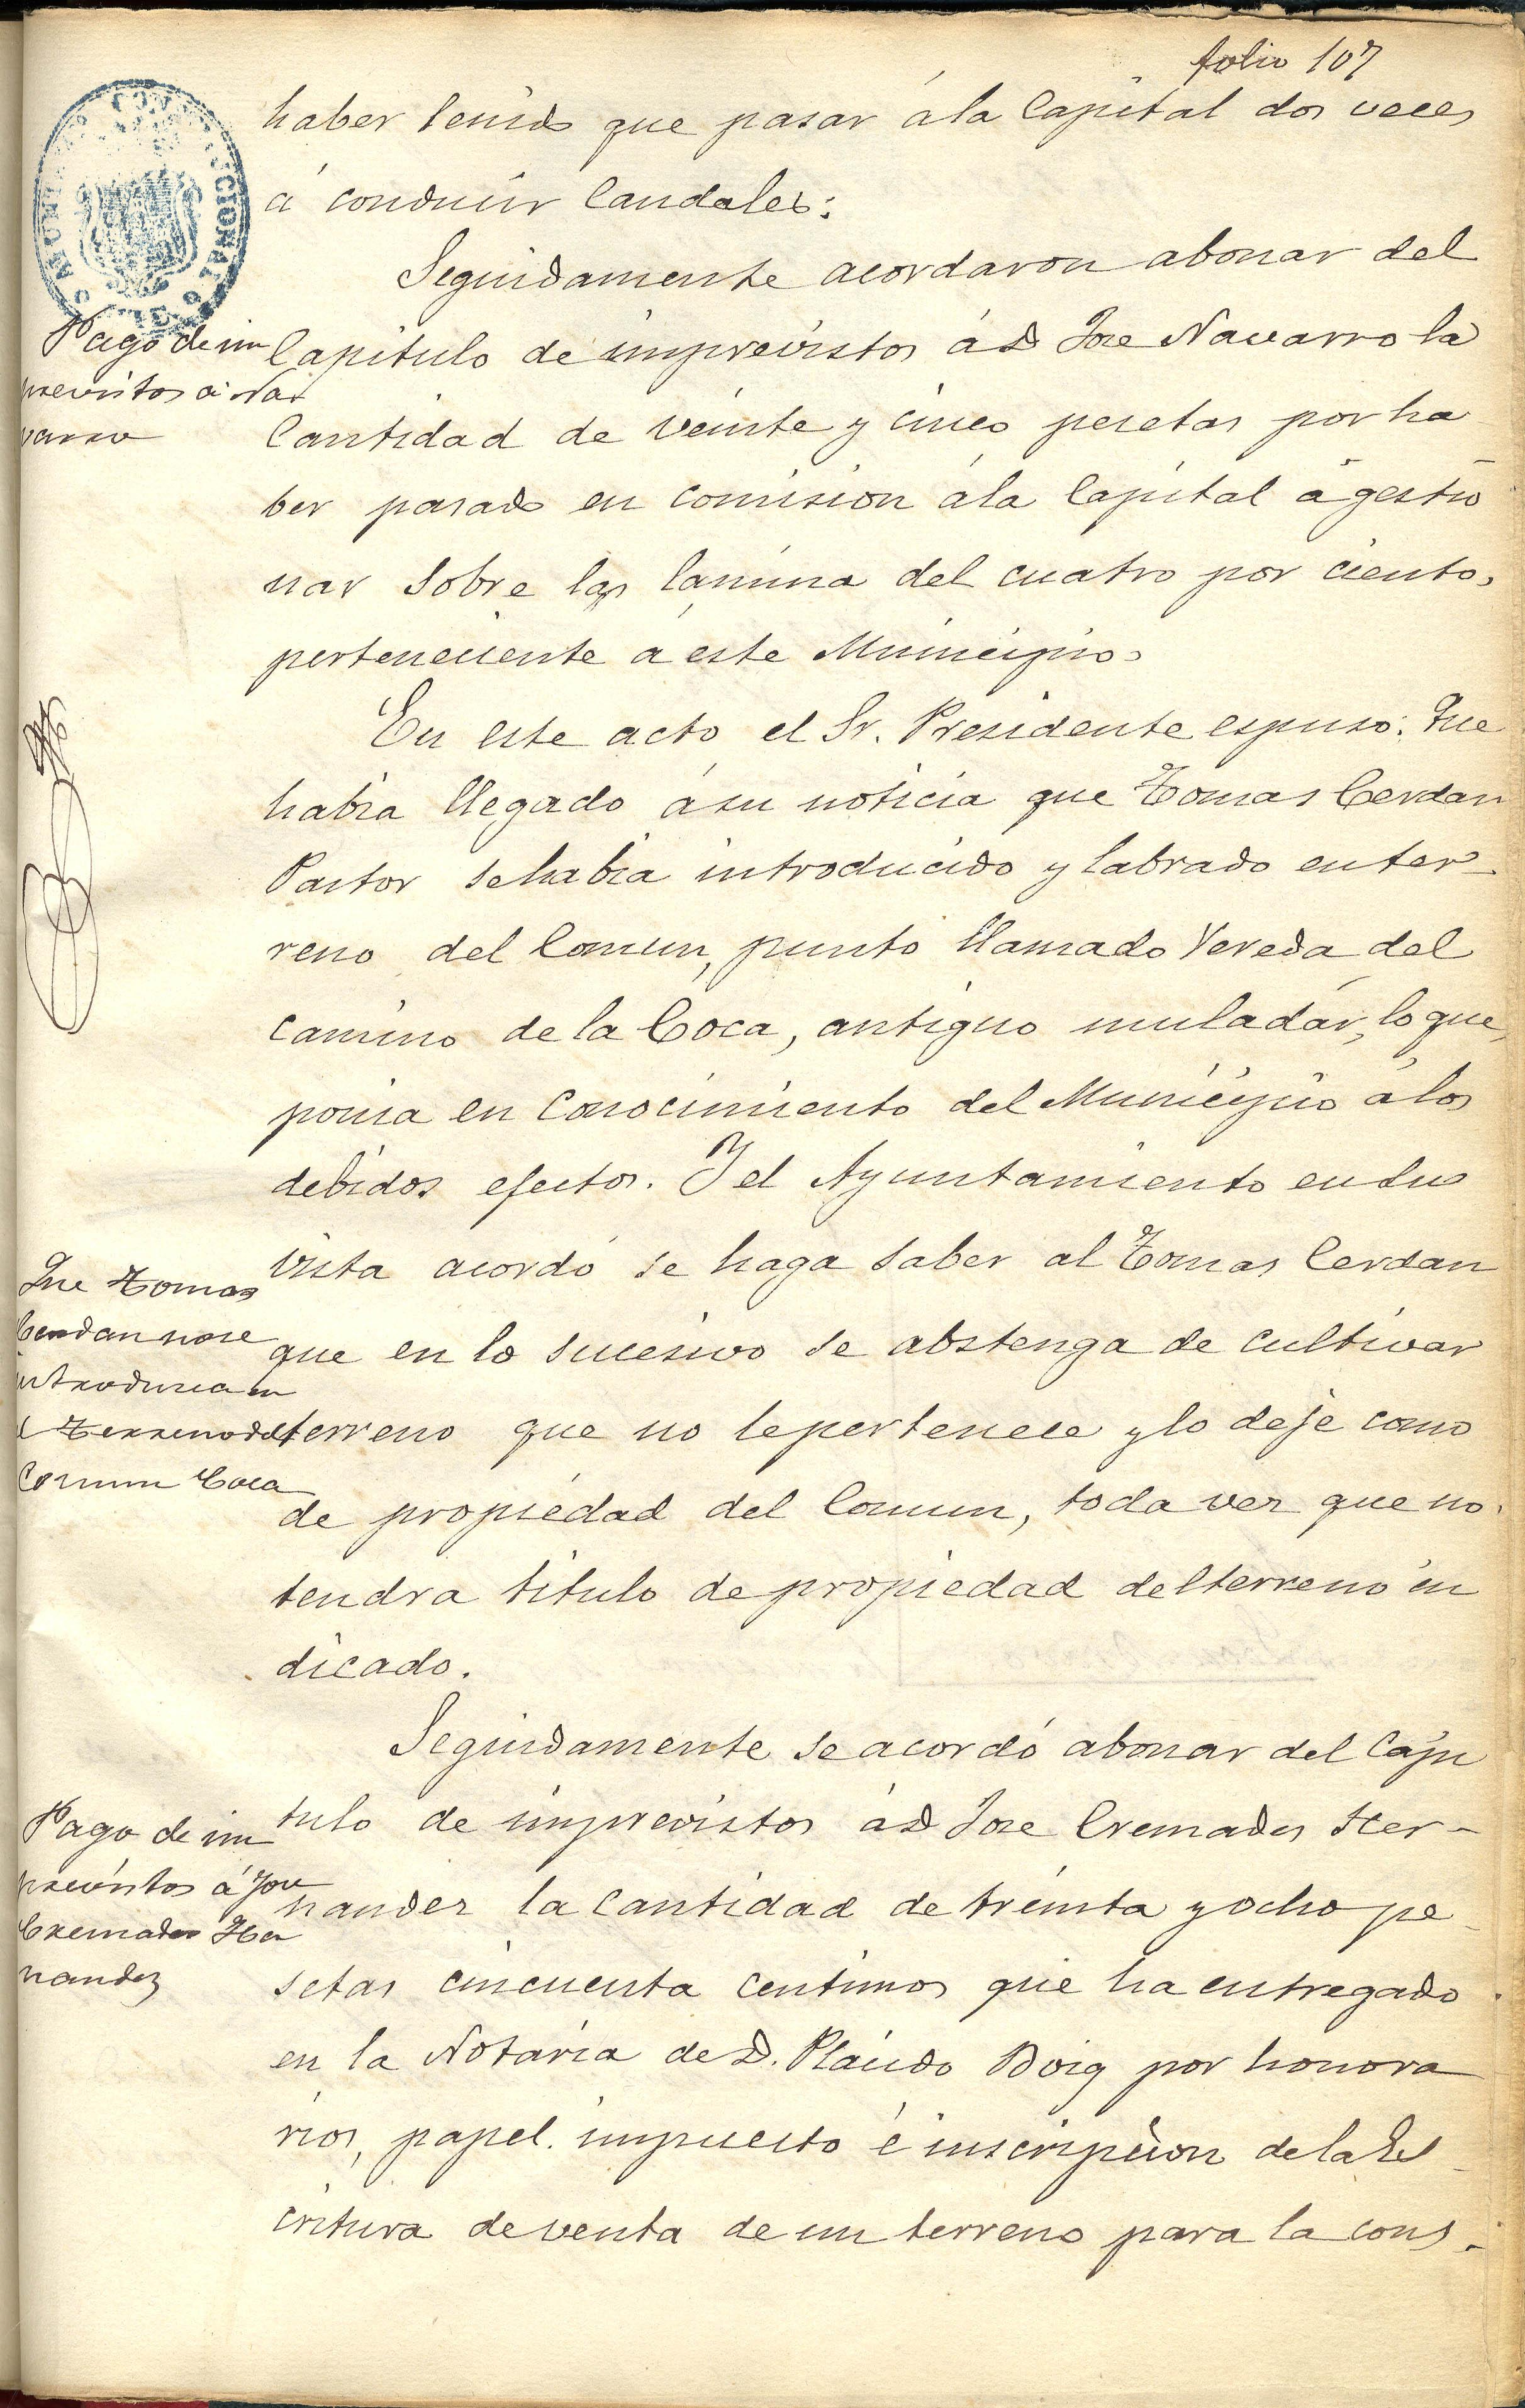 folio 107
haber tenido que pasar á la Capital dos veces
á conducir Caudales:
Seguidamente acordaron abonar del
Pago de im
previstos a Na
varro
Capitulo de imprevistos á D Jose Navarro la
Cantidad de veinte y cinco pesetas por ha
ber pasado en comision á la Capital á gestio
nar sobre las lamina del cuatro por ciento,
perteneciente á este Municipio.
En este acto el Sr. Presidente espuso: Que
habia llegado á su noticia que Tomas Cerdan
Pastor se habia introducido y labrado en ter-
reno del Comun, punto llamado Vereda del
camino de la Coca, antiguo muladár, lo que
ponia en conocimiento del Municipio á los
debidos efectos. Y el Ayuntamiento en su
vista acordó se haga saber al Tomas Cerdan
Que Tomas
Cerdan no se
introdusca en
el Terreno del
Comun Coca
que en lo sucesivo se abstenga de cultivar
terreno que no le pertenece y lo deje como
de propiedad del Comun, toda vez que no
tendra titulo de propiedad del terreno in
dicado.
Seguidamente se acordó abonar del Capi
Pago de im
previstos á Jose
Cremades Her
nandez
tulo de imprevistos á D Jose Cremades Her-
nandez la Cantidad de treinta y ocho pe-
setas cincuenta centimos que ha entregado
en la Notaría de D. Plácido Boig por honora
rios, papel. impuesto é inscripcion de la Es-
critura de venta de un terreno para la cons-